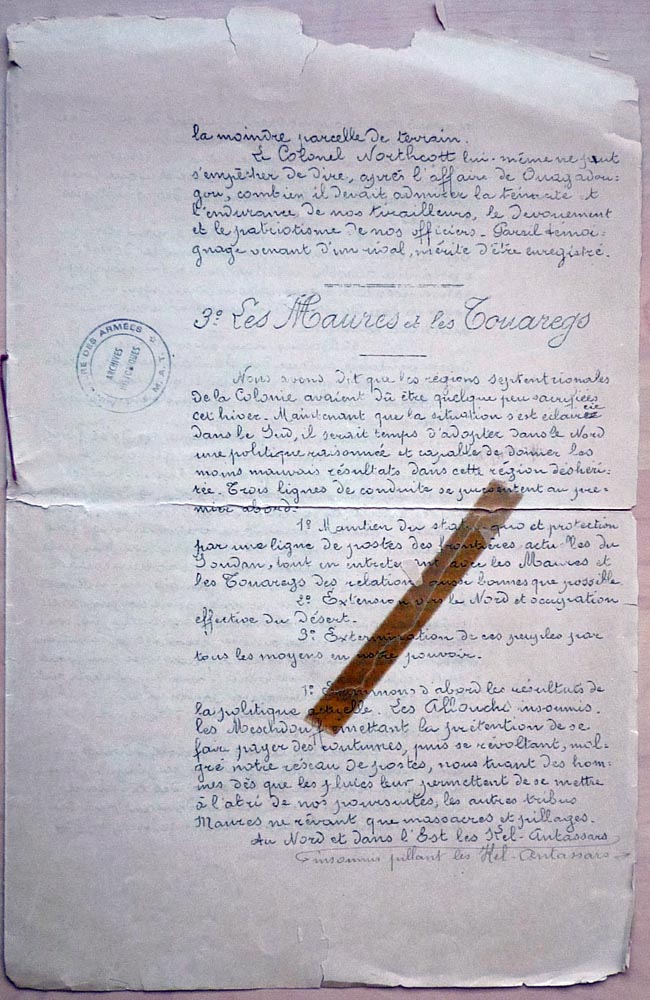 la moindre parcelle de terrain.
Le Colonel Northcott lui-même ne peut
s'empêcher de dire, après l'affaire de Ouagadou-
gou, combien il devait admirer la ténacité et
l'endurance de nos tirailleurs, le dévouement
et le patriotisme de nos officiers. Pareil témoi-
gnage venant d'un rival, mérite d'être enregistré.
3° Les Maures et les Touaregs
ARCHIVES
Nous avons dit que les régions septentrionales
de la Colonie avaient dû être quelque peu sacrifiées
cet hiver. Maintenant que la situation s'est éclaircie
dans le Sud, il serait temps d'adopter dans le Nord
une politique raisonnée et capable de donner les
moins mauvais résultats dans cette région déshéri-
tée. Trois lignes de conduite se présentent au pre-
mier abord.
1° Maintien du statu quo et protection
par une ligne de postes des frontières actuelles du
Soudan, tout en entretenant avec les Maures et
les Touaregs des relations aussi bonnes que possible.
2° Extension vers le Nord et occupation
effective du Désert.
3° Extermination de ces peuples par
tous les moyens en notre pouvoir.
1° Examinons d'abord les résultats de
la politique actuelle. Les Allouchs insoumis.
les Meschdouf émettant la prétention de se
faire payer des coutumes, puis se révoltant, mal-
gré notre réseau de postes, nous tuant des hom-
mes dès que les pluies leur permettent de se mettre
à l'abri de nos poursuites, les autres tribus
Maures ne rêvant que massacres et pillages.
Au Nord et dans l'Est les Kel-Antassars
insoumis pillant les Kel-Antassars